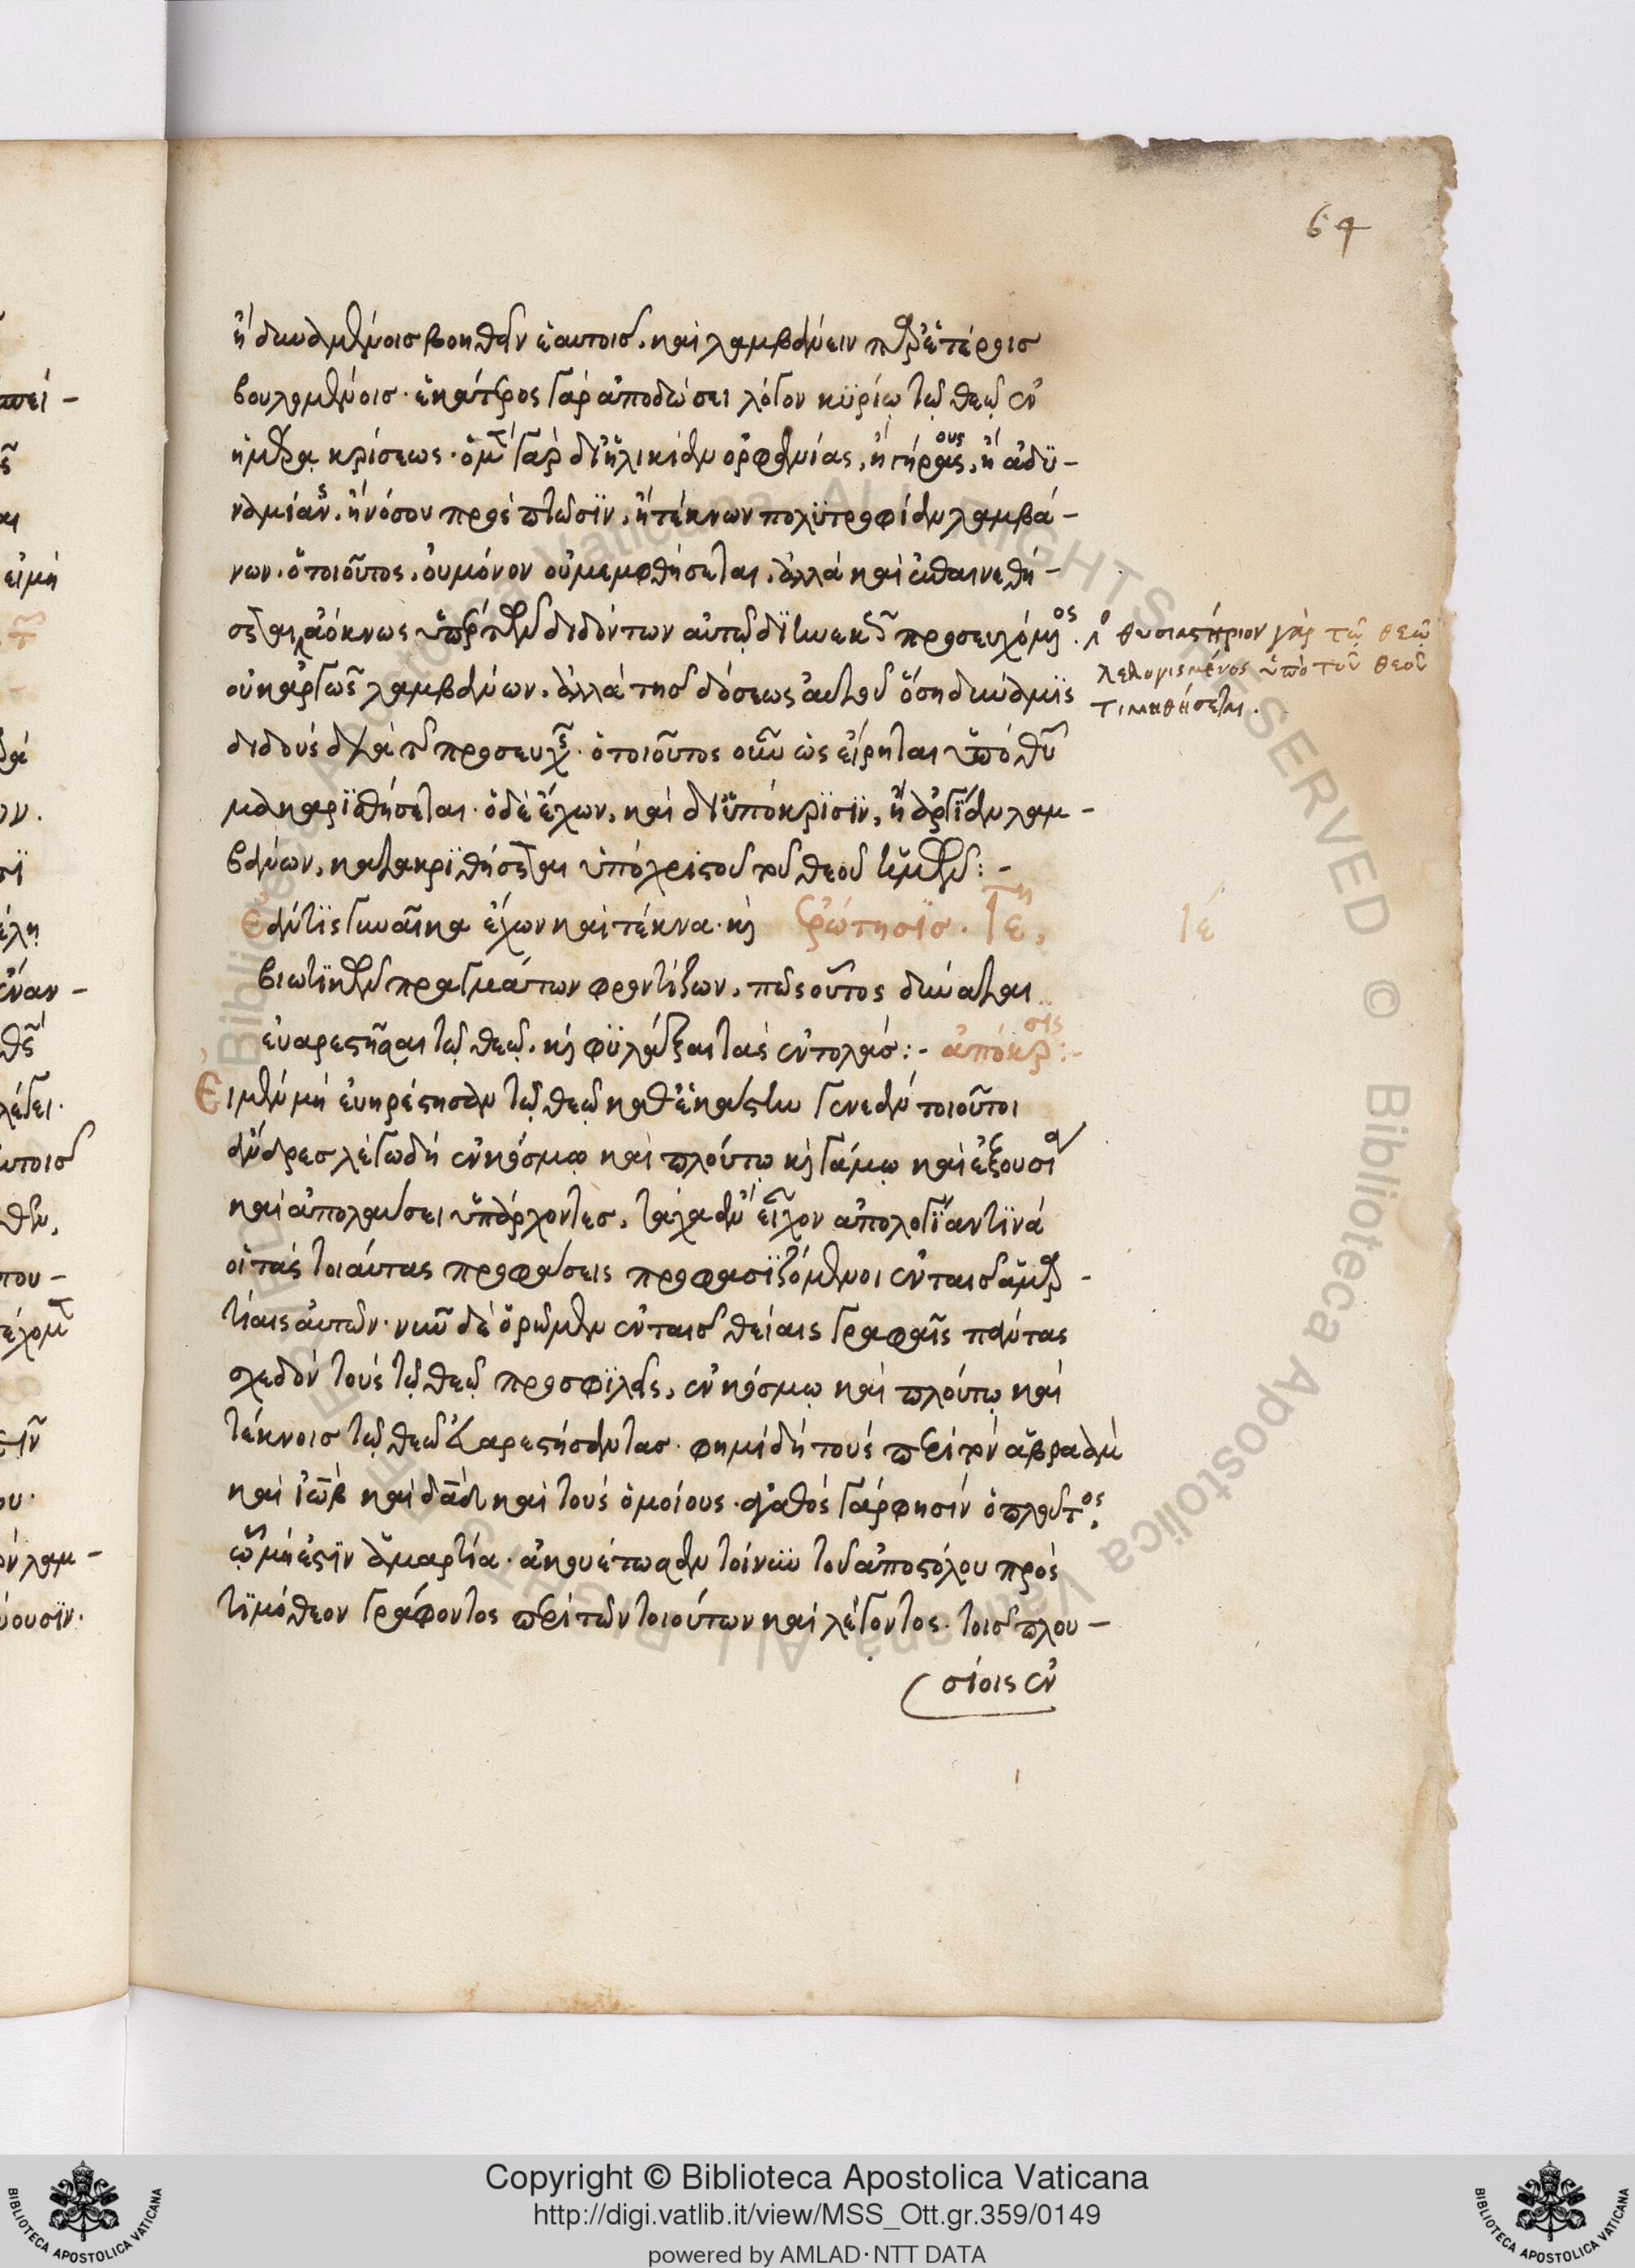 64
ἢ δυναμένοις βοηθεῖν ἑαυτοῖς, καὶ λαμβάνειν παρ' ἑτέροις
βουλομένοις· ἑκάτερος γὰρ ἀποδώσει λόγον κυρίῳ τῷ θεῷ ἐν
ἡμέρᾳ κρίσεως· ὁ μέντοι γὰρ δι' ἡλικίαν ὀρφανίας, ἢ γήρους, ἢ ἀδυ-
ναμίαν, ἢ νόσου πρόσπτωσιν, ἢ τέκνων πολυτροφίαν λαμβά-
νων· ὁ τοιοῦτος, οὐ μόνον οὐ μεμφθήσεται, ἀλλὰ καὶ ἐπαινεθή-
σεται ἀόκνως ὑπὲρ τῶν διδόντων αὐτῷ διηνεκῶς προσευχόμενος.
οὐκ ἀργῶς λαμβάνων, ἀλλὰ τῆς δόσεως αὐτοῦ ὅση δύναμις
διδοὺς διὰ τῆς προσευχῆς· ὁ τοιοῦτος οὖν ὡς εἴρηται ὑπὸ θεοῦ
μακαρισθήσεται· ὁ δὲ ἔχων, καὶ δι' ὑπόκρισιν, ἢ ἀργίαν λαμ-
βάνων, κατακριθήσεται ὑπὸ χριστοῦ τοῦ θεοῦ ἡμῶν:-
θυσιαστήριον γάρ τῷ θεῷ
λελογισμένος ὑπὸ τοῦ θεοῦ
τιμηθήσεται.
Ἐάν τις γυναῖκα ἔχων καὶ τέκνα· κὶ Ἐρώτησις. ΙΕη,
ΙΕ
βιωτικῶν πραγμάτων φροντίζων, πῶς οὗτος δύναται
εὐαρεστῆσαι τῷ θεῷ, κὶ φυλάξαι τὰς ἐντολάς:- ἀπόκρισις:-
Εἰ μὲν μὴ εὐηρέστησαν τῷ θεῷ καθ' ἑκάστην γενεὰν τοιοῦτοι
ἄνδρες λέγω δὴ ἐν κόσμῳ καὶ πλούτῳ κὶ γάμῳ καὶ ἐξουσίᾳ
καὶ ἀπολαύσει ὑπάρχοντες, τάχα ἂν εἶχον ἀπολογίαν τινά
οἱ τὰς τοιαύτας προφάσεις προφασιζόμενοι ἐν ταῖς ἁμαρ-
τίαις αὐτῶν· νῦν δὲ ὁρῶμεν ἐν ταῖς θείαις γραφαῖς πάντας
σχεδὸν τοὺς τῷ θεῷ προσφιλεῖς, ἐν κόσμῳ καὶ πλούτῳ καὶ
τέκνοις τῷ θεῷ εὐαρεστήσαντας· φημὶ δὴ τοὺς περὶ τὸν ἀβραὰμ
καὶ ἰὼβ καὶ δαδ καὶ τοὺς ὁμοίους· ἀγαθὸς γάρ φησιν ὁ πλοῦτος,
ᾧ μή ἐστιν ἁμαρτία· ἀκουέτωσαν τοίνυν τοῦ ἀποστόλου πρὸς
τιμόθεον γράφοντος περὶ τῶν τοιούτων καὶ λέγοντος· τοῖς πλου-
σίοις ἐν
Copyright © Biblioteca Apostolica Vaticana
http://digi.vatlib.it/view/MSS_Ott.gr.359/0149
powered by AMLAD·NTT DATA